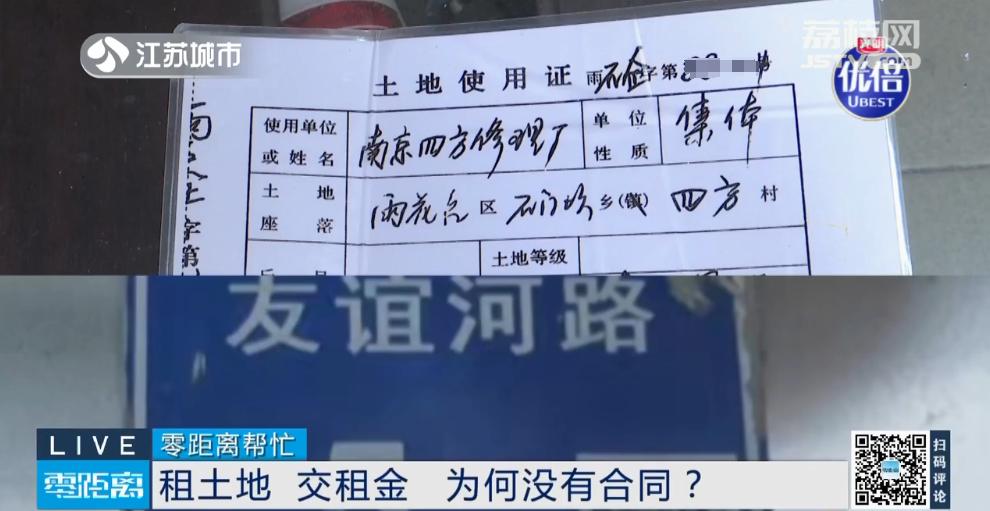 江苏城市
荔枝网
JSTV.COM
光明
优倍
UBEST
土地使用证 雨石企字第
使用单位或姓名 南京四方修理厂 单位性质 集体
土地座落 雨花台区石门坎乡(镇)四方村
土地等级
友谊河路
LIVE 零距离帮忙
零距离 租土地 交租金 为何没有合同？
扫码评论